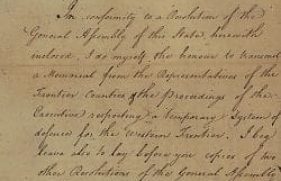 In conformity to a Resolution of the
General Assembly of this State, herewith
inclosed, I do myself the honour to transmit
a Memorial from the Representatives of the
Frontier Counties & the proceedings of the
Executive respecting a temporary System of
defence for the Western Frontier. I beg
leave also to lay before you copies of two
other Resolutions of the General Assembly